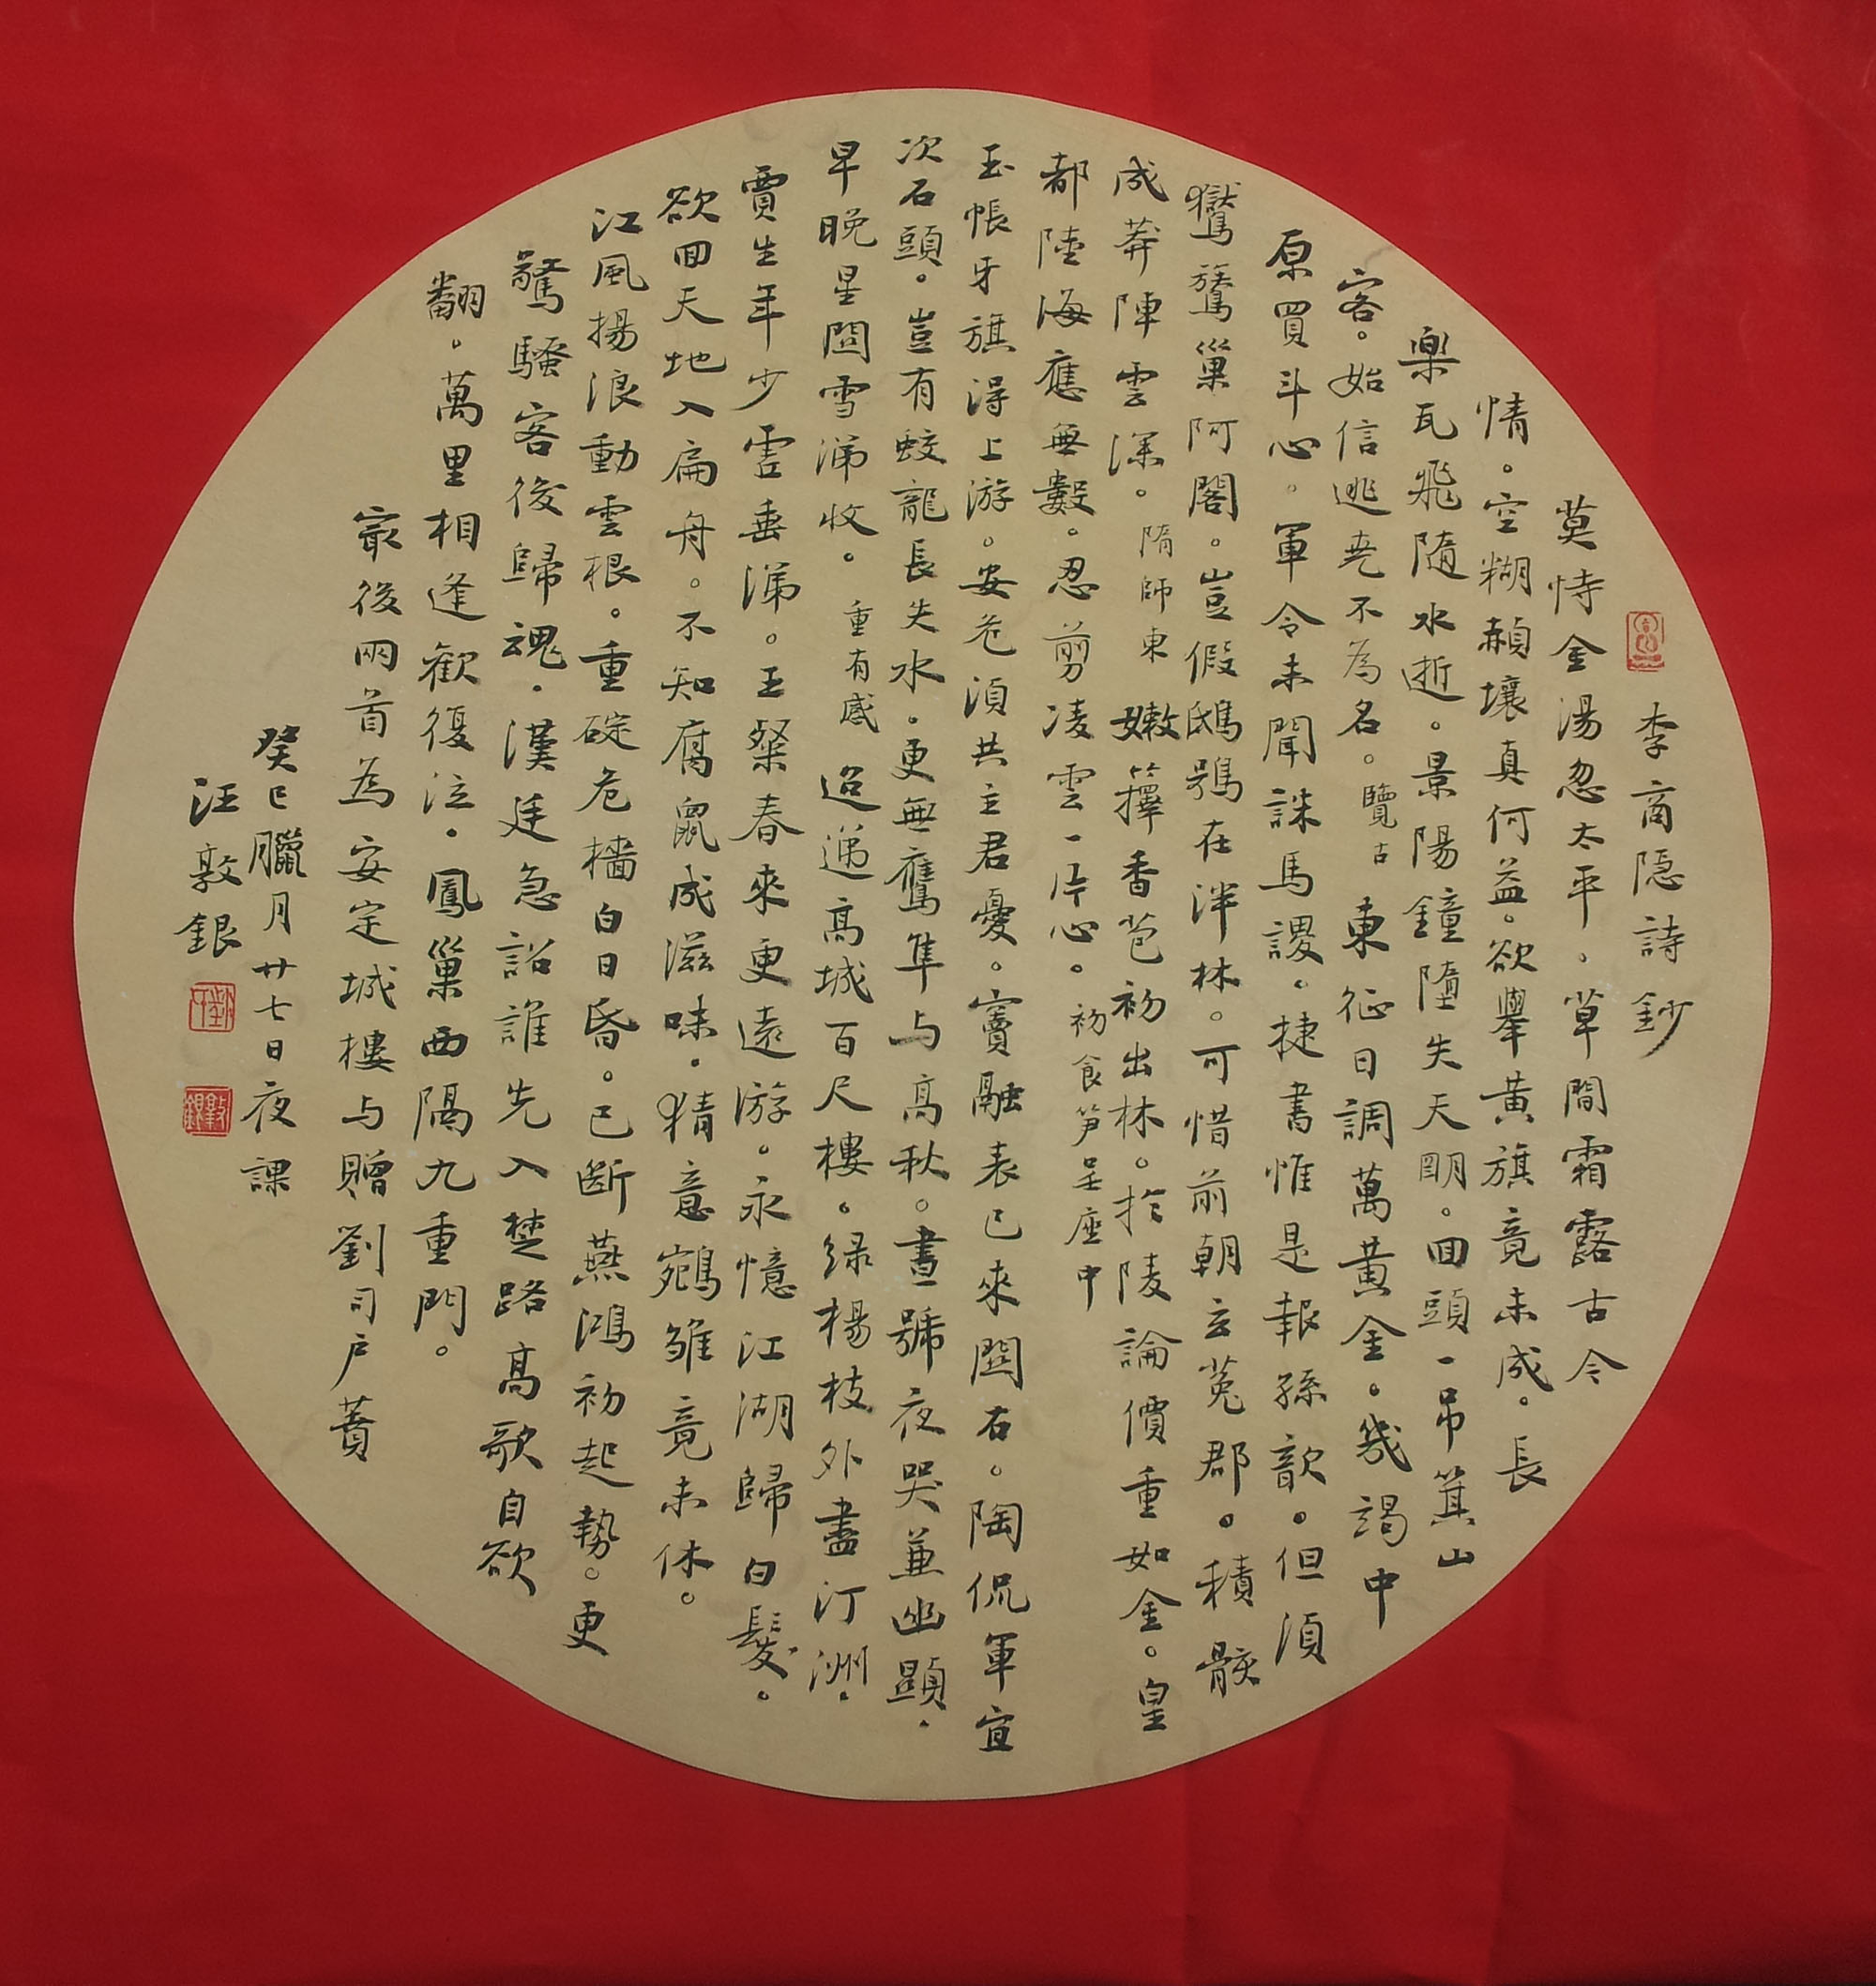 李商隱詩鈔
莫恃金湯忽太平。草間霜露古今
情。空糊赬壤真何益。欲舉黃旗竟未成。長
樂瓦飛隨水逝。景陽鐘墮失天明。回頭一吊箕山
客。始信逃堯不為名。覽古 東征日調萬黃金。幾謁中
原買斗心。軍令未聞誅馬謖。捷書惟是報孫歆。但須
鸑鷟巢阿閣。豈假鴟鴞在泮林。可惜前朝玄菟郡。積骸
成莽陣雲深。隋師東 嫩籜香苞初出林。於陵論價重如金。皇
都陸海應無數。忍剪凌雲一片心。初食笋呈座中
玉帳牙旗得上游。安危須共主君憂。竇融表已來關右。陶侃軍宜
次石頭。豈有蛟龍長失水。更無鷹隼与高秋。晝號夜哭兼幽顯。
早晚星關雪涕收。重有感 迢遞高城百尺樓。綠楊枝外盡汀洲。
賈生年少虛垂涕。王粲春來更遠游。永憶江湖歸白髮。
欲回天地入扁舟。不知腐鼠成滋味。猜意鵷雛竟未休。
江風揚浪動雲根。重碇危檣白日昏。已斷燕鴻初起勢。更
驚騷客後歸魂。漢廷急詔誰先入楚路高歌自欲
翻。萬里相逢歡復泣。鳳巢西隔九重門。
最後兩首為安定城樓与贈劉司户蕡
癸巳臘月廿七日夜課
汪敦銀